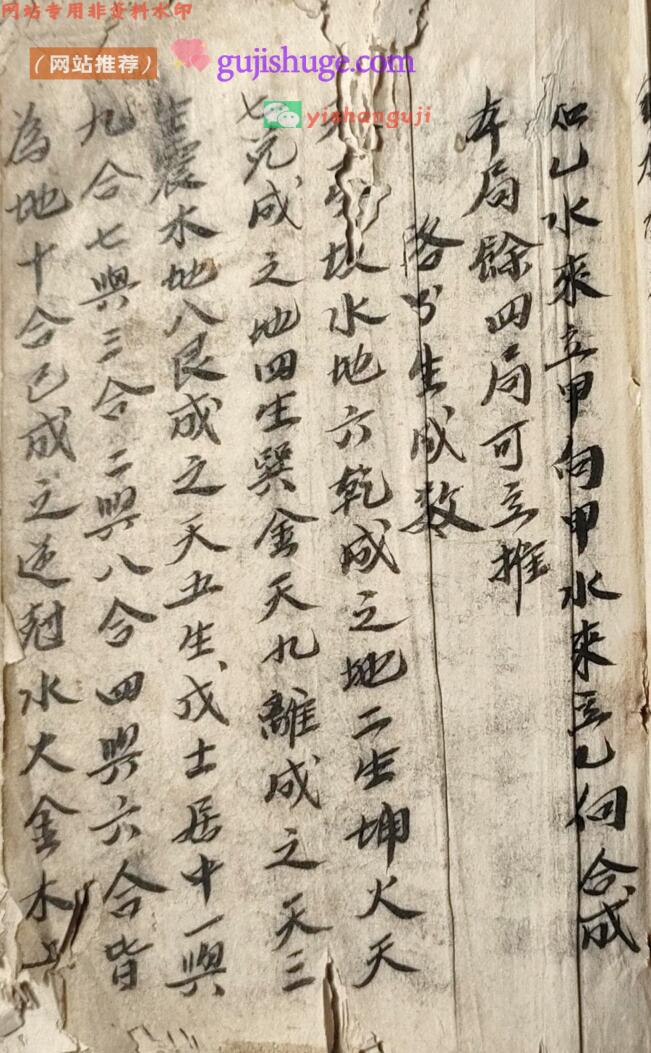 网站专用非资料水印
（网站推荐）
gujishuge.com
yishanguji
如乙水來立甲向甲水來立乙向合成
本局餘四局可立推
洛書生成数
坎水地六乾成之地二生坤火天
七兌成之地四生巽金天九離成之天三
生震木地八艮成之天五生戊土居中一與
九合七與三合二與八合四與六合皆
為地十合己成之逆尅水火金木土